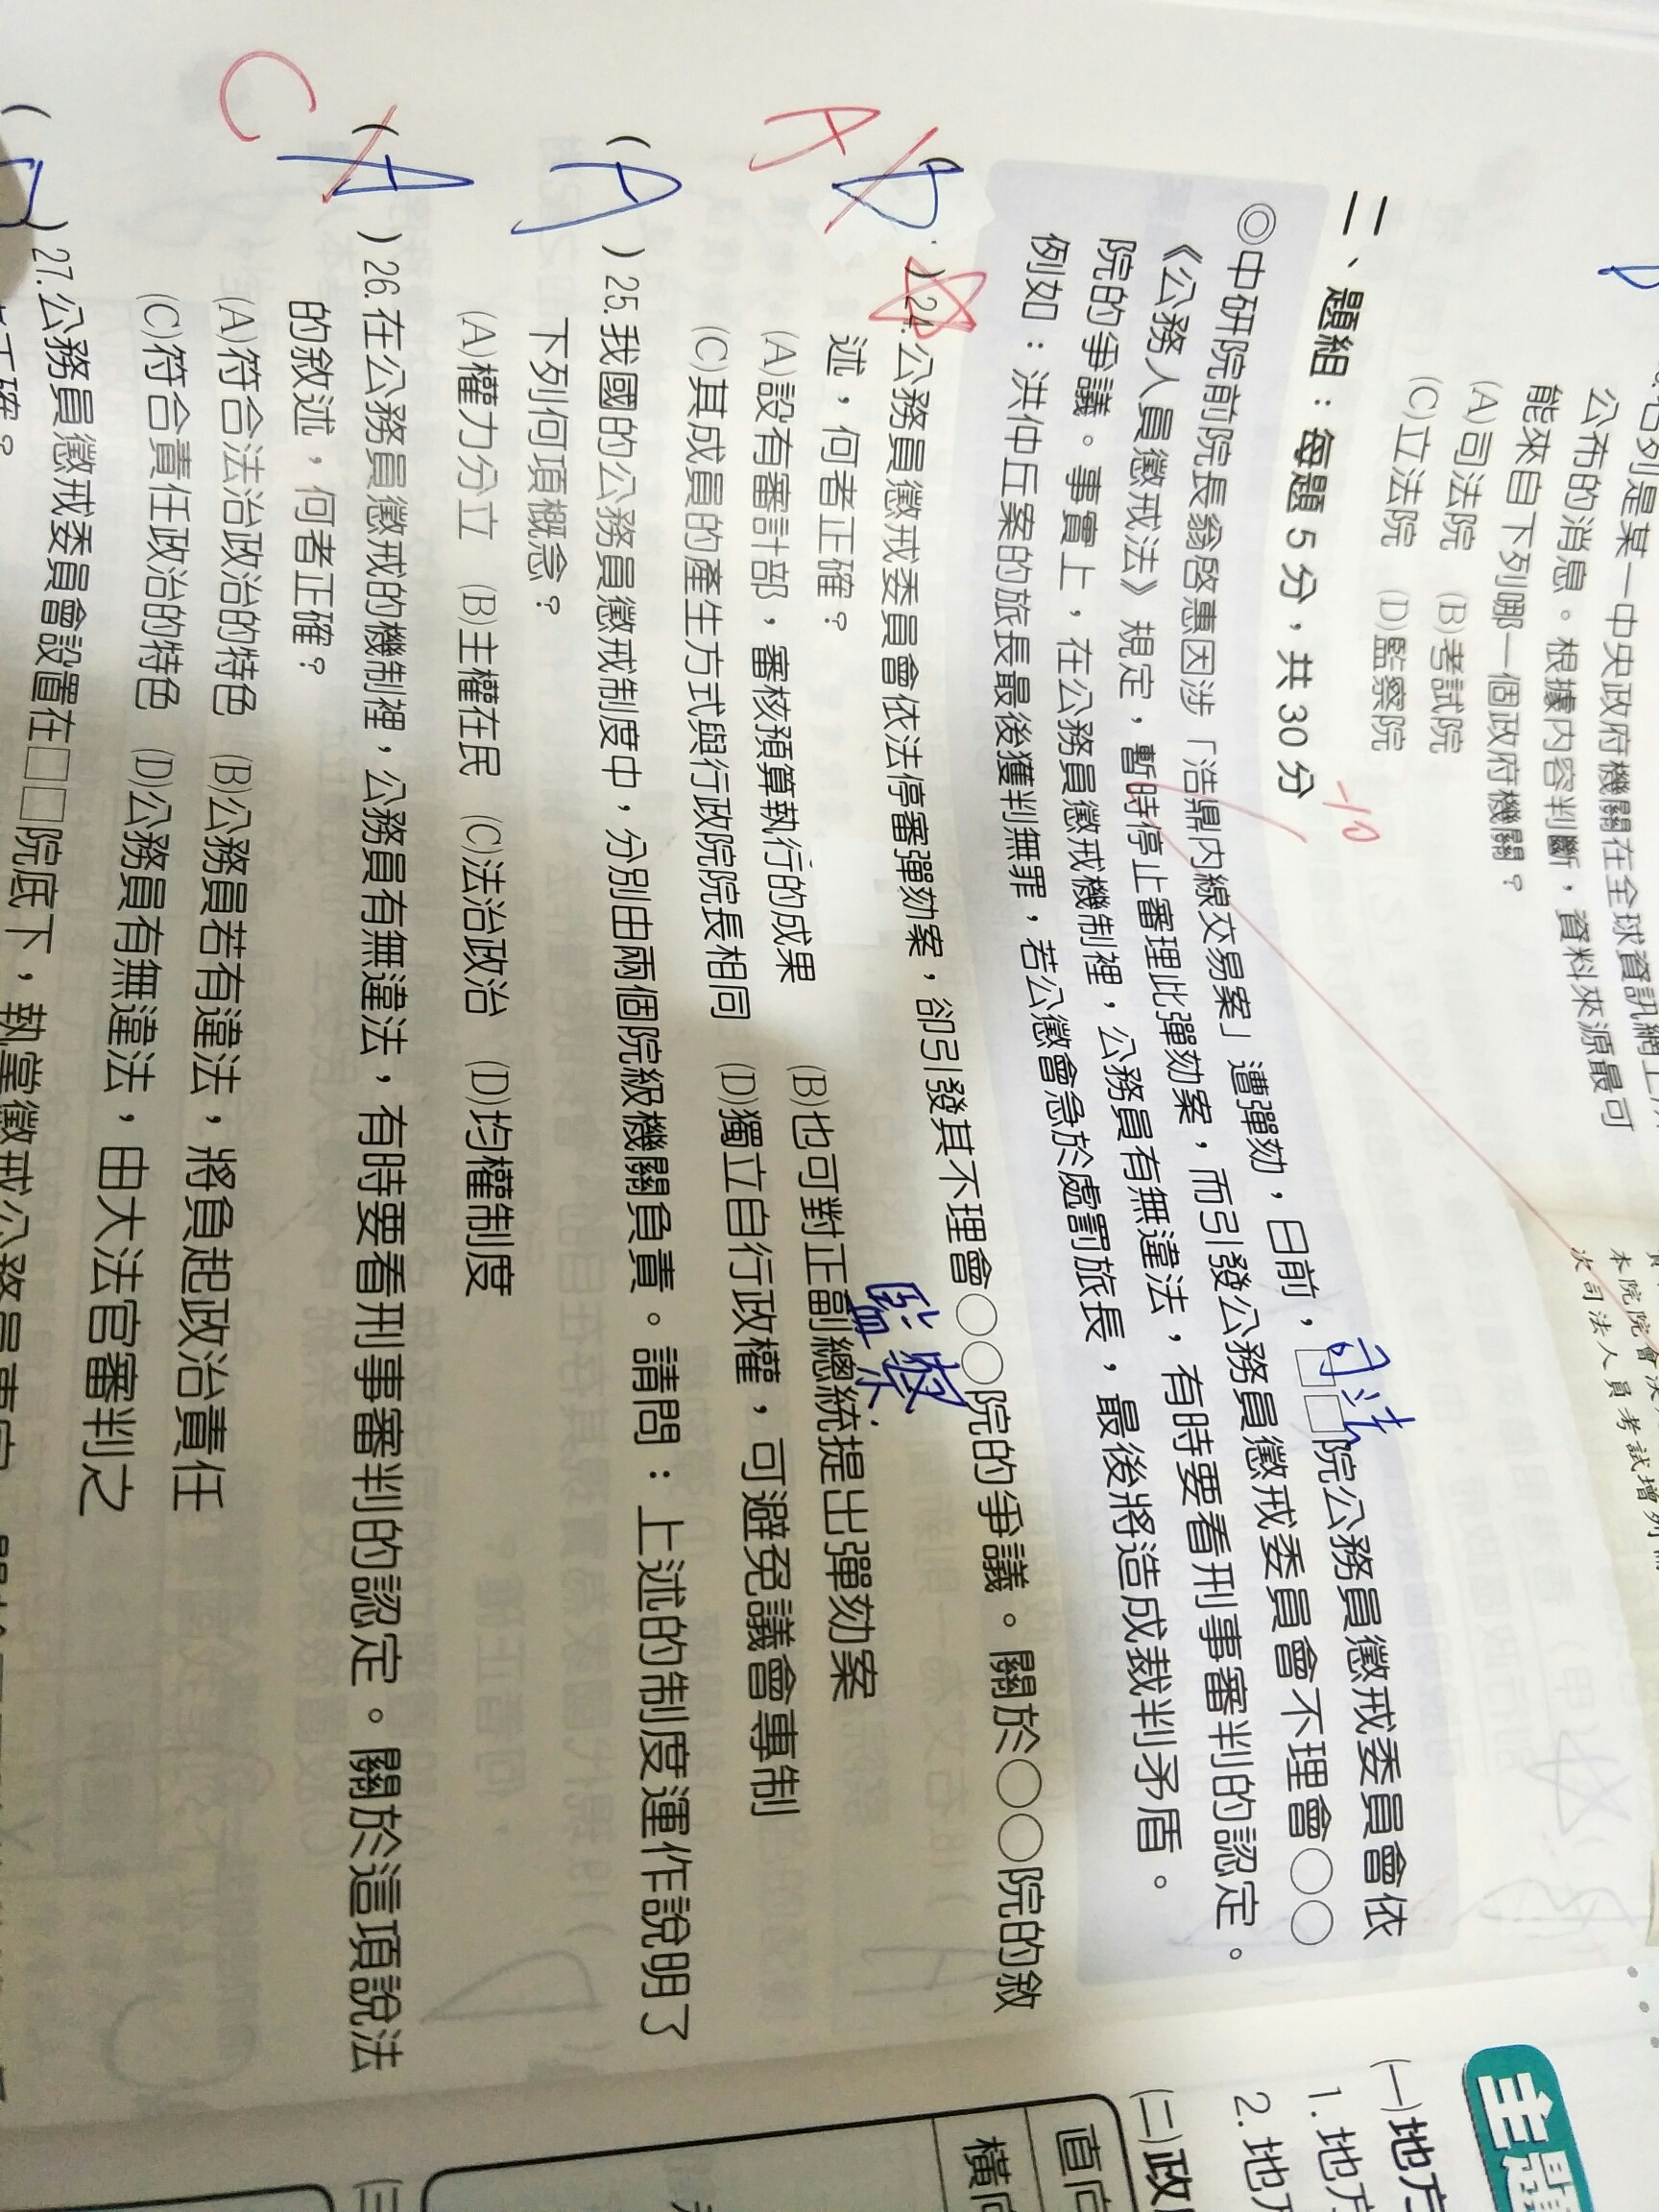 公布的消息。根據內容判斷，資料來源最可
能來自下列哪一個政府機關？
(A)司法院 (B)考試院
(C)立法院 (D)監察院
本院院會
次司法人員考試增列
二、題組：每題 5 分，共 30 分
-10
◎中研院前院長翁啓惠因涉「浩鼎內線交易案」遭彈劾，日前，□□院公務員懲戒委員會依
司法
《公務人員懲戒法》規定，暫時停止審理此彈劾案，而引發公務員懲戒委員會不理會○○
院的爭議。事實上，在公務員懲戒機制裡，公務員有無違法，有時要看刑事審判的認定。
例如：洪仲丘案的旅長最後獲判無罪，若公懲會急於處罰旅長，最後將造成裁判矛盾。
A
( B )24.公務員懲戒委員會依法停審彈劾案，卻引發其不理會○○院的爭議。關於○○院的敘
監察
述，何者正確？
(A)設有審計部，審核預算執行的成果 (B)也可對正副總統提出彈劾案
(C)其成員的產生方式與行政院院長相同 (D)獨立自行政權，可避免議會專制
( A )25.我國的公務員懲戒制度中，分別由兩個院級機關負責。請問：上述的制度運作說明了
下列何項概念？
(A)權力分立 (B)主權在民 (C)法治政治 (D)均權制度
C
( A )26.在公務員懲戒的機制裡，公務員有無違法，有時要看刑事審判的認定。關於這項說法
的敘述，何者正確？
(A)符合法治政治的特色 (B)公務員若有違法，將負起政治責任
(C)符合責任政治的特色 (D)公務員有無違法，由大法官審判之
( )27.公務員懲戒委員會設置在□□院底下，執掌懲戒公務員事宜。
正確？
主題
(一)地方
1.地方
2.地方
(二)政
直向
橫向
(三